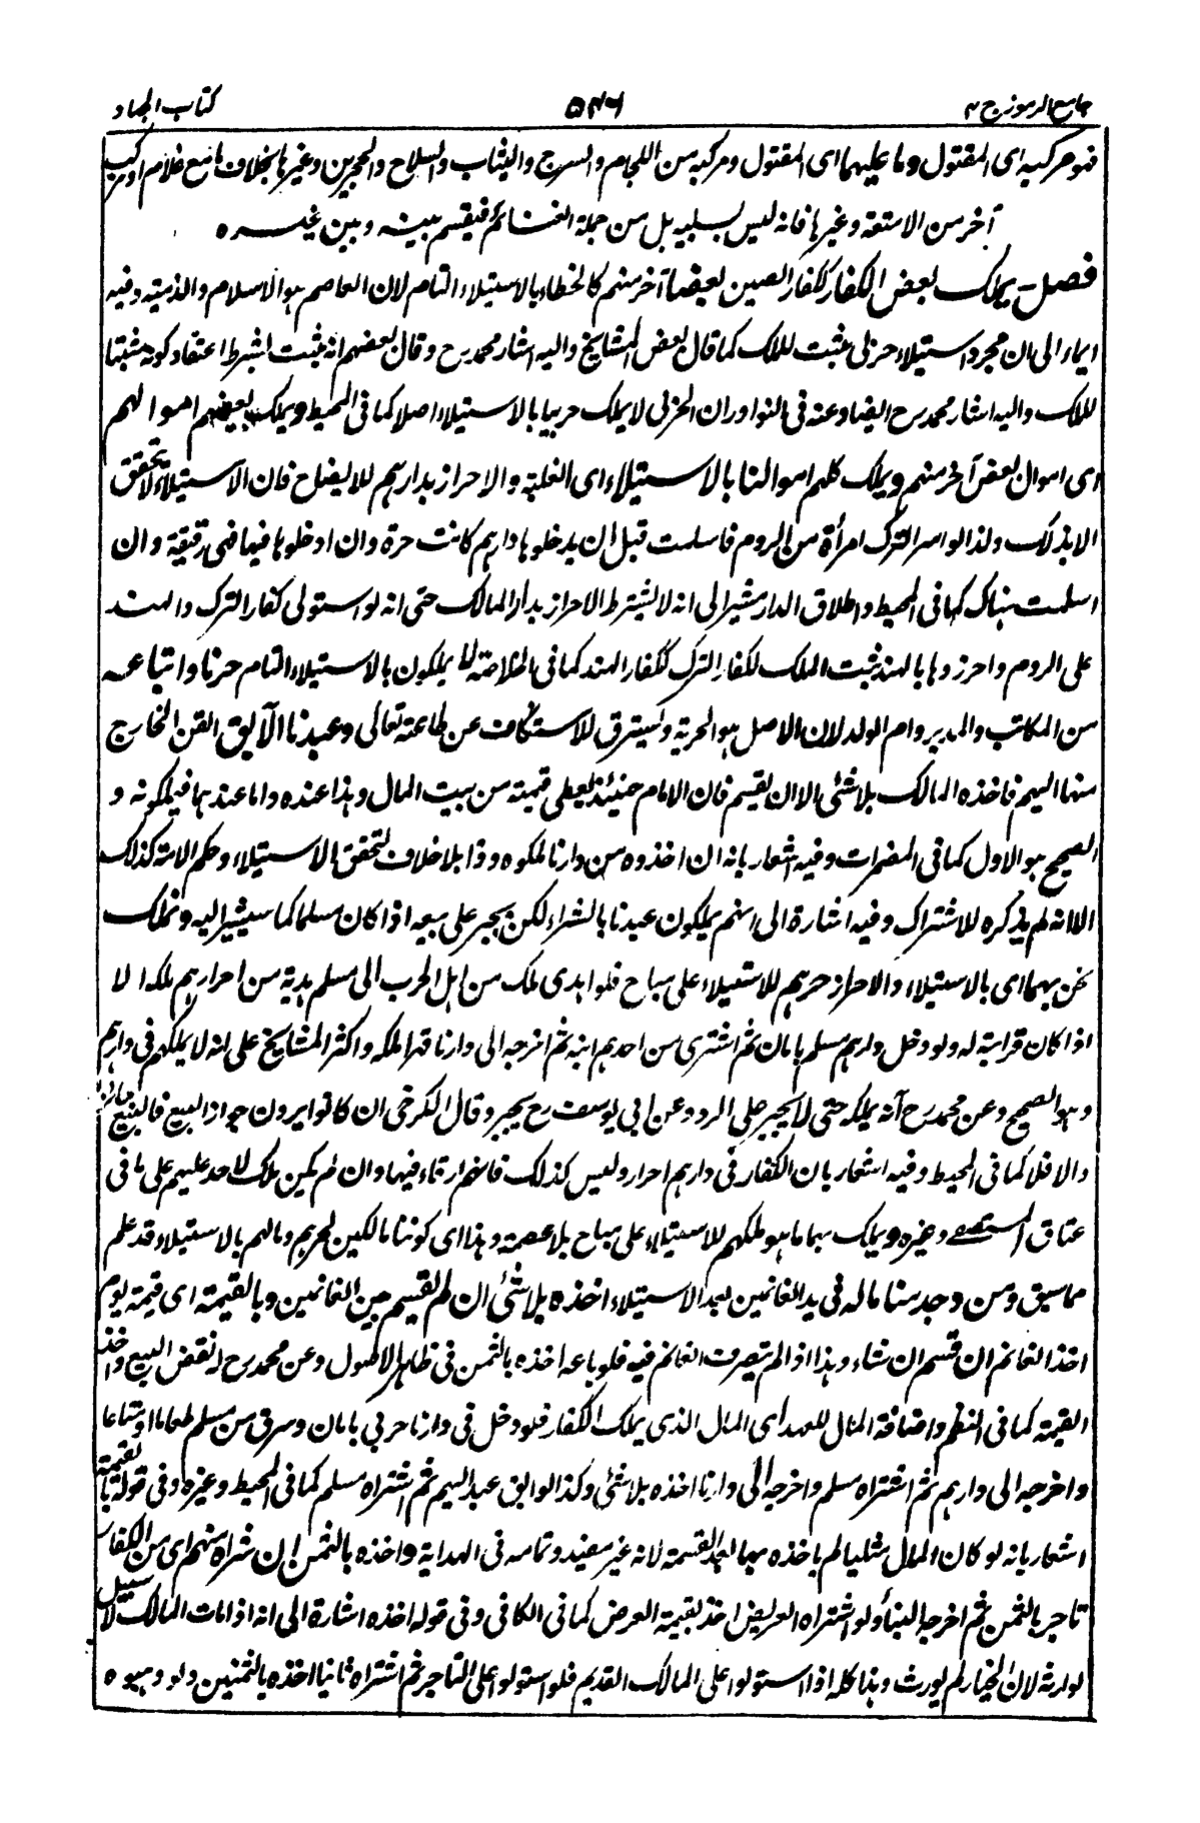 جامع الرموز ج ٢ ٥٤٦ كتاب الجهاد
فهو مركبه اى المقتول وما عليهما اى المقتول ومركبه من اللجام والسرج والثياب والسلاح والحجرين وغيرها بخلاف ما مع غلام او مركب
آخر من الامتعة وغيرها فانه ليس بسلبه بل من جملة الغنائم فيقسم بينه وبين غيره
فصل يملك بعض الكفار ككفار الصين بعضا آخر منهم كالخطاء بالاستيلاء التام لان العاصم هو الاسلام والذمية وفيه
ايماء الى ان مجرد استيلاء حربى مثبت للملك كما قال بعض المشايخ واليه اشار محمد رح وقال بعضهم انه مثبت بشرط اعتقاد كونه مثبتا
للملك واليه اشار محمد رح ايضا وعنه فى النوادر ان الحربى لا يملك حربيا بالاستيلاء اصلا كما فى المحيط ويملك بعضهم اموالهم
اى اموال بعض آخر منهم ويملك كلهم اموالنا بالاستيلاء اى الغلبة والاحراز بدارهم للايضاح فان الاستيلاء لا يتحقق
الا بذلك ولذا لو اسر الترك امرأة من الروم فاسلمت قبل ان يدخلوها دارهم كانت حرة وان ادخلوها فيها فهى رقيقة وان
اسلمت هناك كما فى المحيط واطلاق الدار مشير الى انه لا يشترط الاحراز بدار المالك حتى انه لو استولى كفار الترك والهند
على الروم واحرزوها بالهند ثبت الملك لكفار الترك ككفار الهند كما فى الخلاصة لا يملكون بالاستيلاء التام حرنا واتباعه
من المكاتب والمدبر وام الولد لان الاصل هو الحرية ويسترق للاستنكاف عن طاعته تعالى وعبدنا الآبق القن الخارج
منها اليهم فاخذه المالك بلا شئ الا ان يقسم فان الامام حينئذ يعطى قيمته من بيت المال وهذا عنده واما عندهما فيملكونه و
الصحيح هو الاول كما فى المضمرات وفيه اشعار بانه ان اخذوه من دارنا ملكوه وذا بلا خلاف لتحقق الاستيلاء وحكم الامة كذلك
الا انه لم يذكره للاشتراك وفيه اشارة الى انهم يملكون عبدنا بالشراء لكن يجبر على بيعه اذا كان مسلما كما سيشير اليه ونملك
نحن بهما اى بالاستيلاء والاحراز حرهم للاستيلاء على مباح فلو اهدى ملك من اهل الحرب الى مسلم هدية من احرارهم ملكه الا
اذا كان قرابته له ولو دخل دارهم مسلم بامان ثم اشترى من احدهم ابنه ثم اخرجه الى دارنا قهرا ملكه واكثر المشايخ على انه لا يملكهم فى دارهم
وهو الصحيح وعن محمد رح انه يملكه حتى لا يجبر على الرد وعن ابى يوسف رح يجبر وقال الكرخى ان كانوا يرون جواز البيع فالبيع جائز
والا فلا كما فى المحيط وفيه اشعار بان الكفار فى دارهم احرار وليس كذلك فانهم ارقاء فيها وان لم يكن ملك لاحد عليهم على ما فى
عتاق المستصفى وغيره ويملك بهما ما هو ملكهم للاستيلاء على مباح بلا عصمة وهذا اى كوننا مالكين لحربهم ومالهم بالاستيلاء قد علم
مما سبق ومن وجد منا ماله فى يد الغانمين بعد الاستيلاء اخذه بلا شئ ان لم يقسم بين الغانمين وبالقيمة اى قيمة يوم
اخذ الغانم ان قسم ان شاء وهذا اذا لم يتصرف الغانم فيه فلو باعه اخذه بالثمن فى ظاهر الاصول وعن محمد رح انه نقض البيع واخذ
القيمة كما فى النظم واضافة المال للعهد اى المال الذى يملكه الكفار فلو دخل فى دارنا حربى بامان وسرق من مسلم طعاما او متاعا
واخرجه الى دارهم ثم اشتراه مسلم واخرجه الى دارنا اخذه بلا شئ وكذا لو ابق عبد اليهم ثم اشتراه مسلم كما فى المحيط وغيره وفى قوله بالقيمة
اشعار بانه لو كان المال مثليا لم ياخذه بهما بعد القسمة لانه غير مفيد وتمامه فى الهداية واخذه بالثمن ان شراه منهم اى من الكفار
تاجر بالثمن ثم اخرجه الينا ولو اشتراه العروض اخذ بقيمة العرض كما فى الكافى وفى قوله اخذه اشارة الى انه اذا مات المالك لا سبيل
لوارثه لان الخيار لم يورث وهذا كله اذا استولوا على المالك القديم فلو استولوا على التاجر ثم اشتراه ثانيا اخذه بالثمنين ولو وهبوه